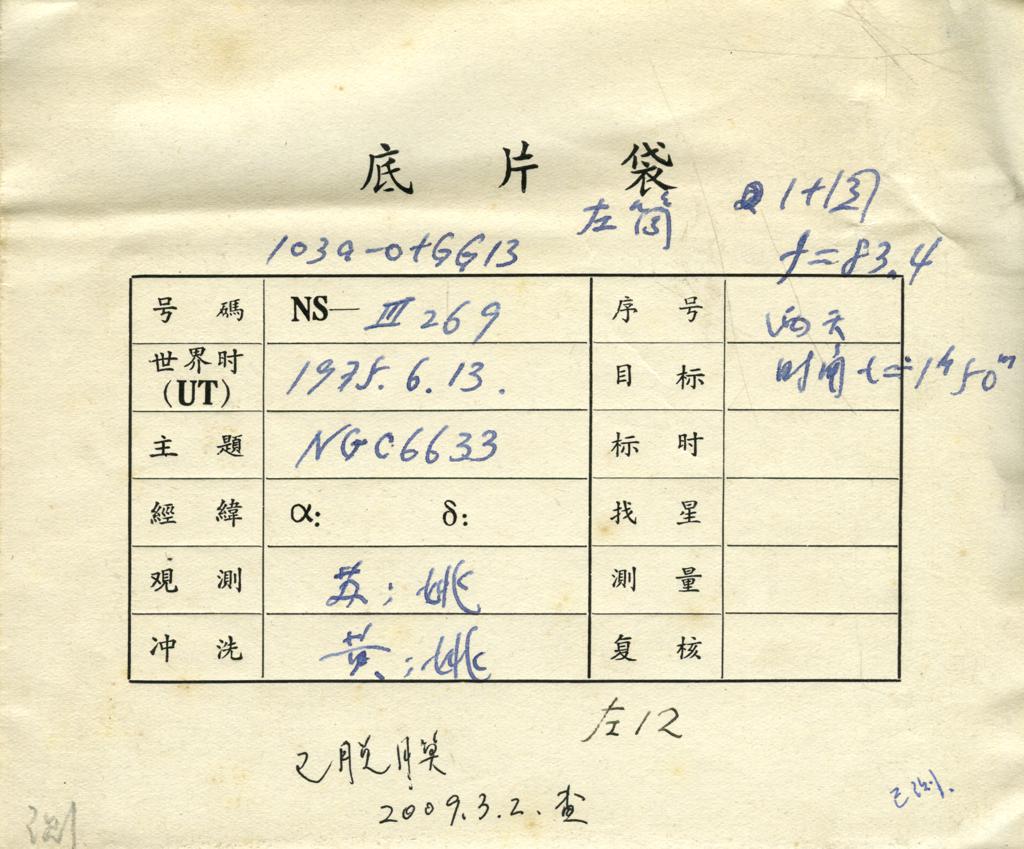 底 片 袋
左筒
1+12
103a-O+GG13
f=83.4
号 碼 NS— Ⅲ 269 序 号 两天
世界时 (UT) 1975.6.13. 目 标 时角 t=1ʰ50ᵐ
主 題 NGC6633 标 时
經 緯 α: δ: 找 星
观 測 苏;姚 測 量
冲 洗 黄;姚 复 核
左12
已脱膜
2009.3.2.查
已测.
测